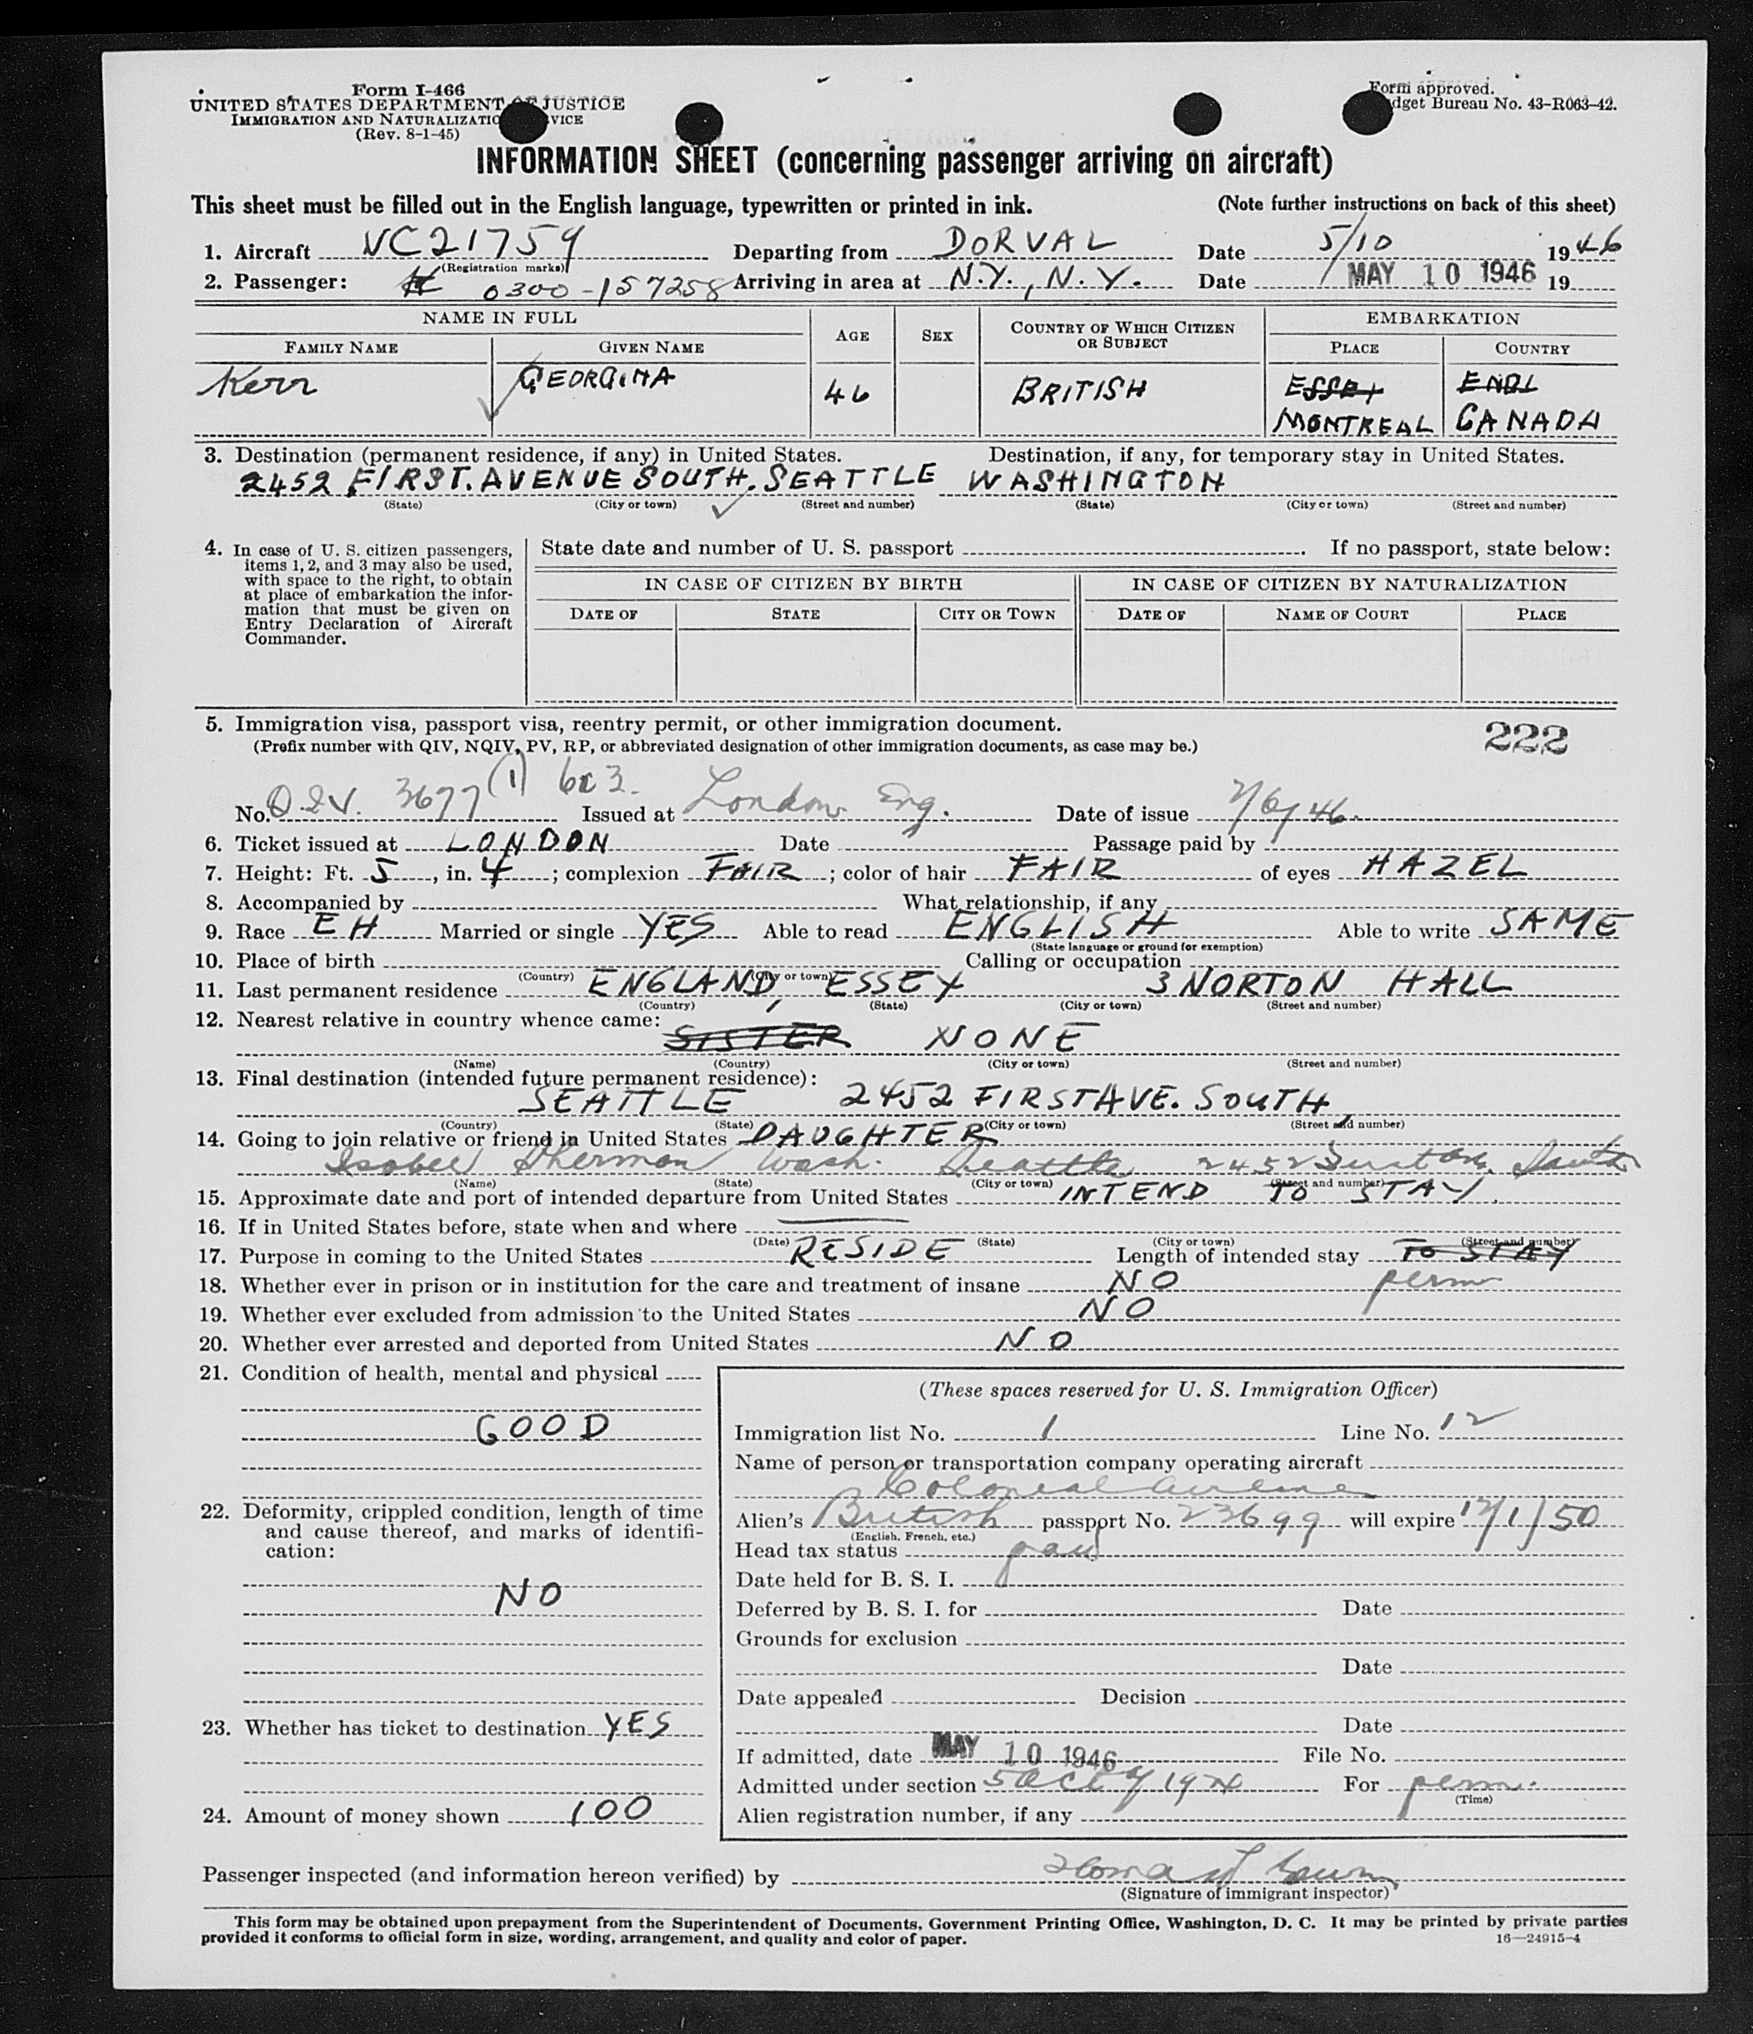 Form I-466
UNITED STATES DEPARTMENT OF JUSTICE
IMMIGRATION AND NATURALIZATION SERVICE
(Rev. 8-1-45)
Form approved.
Budget Bureau No. 43-R063-42.
INFORMATION SHEET (concerning passenger arriving on aircraft)
This sheet must be filled out in the English language, typewritten or printed in ink. (Note further instructions on back of this sheet)
1. Aircraft NC21759 Departing from DORVAL Date 5/10 1946
(Registration marks)
2. Passenger: 0300-157258 Arriving in area at N.Y., N.Y. Date MAY 10 1946 19
NAME IN FULL AGE SEX COUNTRY OF WHICH CITIZEN OR SUBJECT EMBARKATION
FAMILY NAME GIVEN NAME PLACE COUNTRY
Kerr GEORGINA 46 BRITISH ESSEX ENGL
MONTREAL CANADA
3. Destination (permanent residence, if any) in United States. Destination, if any, for temporary stay in United States.
2452 FIRST. AVENUE SOUTH. SEATTLE WASHINGTON
(State) (City or town) (Street and number) (State) (City or town) (Street and number)
4. In case of U. S. citizen passengers, items 1, 2, and 3 may also be used, with space to the right, to obtain at place of embarkation the information that must be given on Entry Declaration of Aircraft Commander.
State date and number of U. S. passport . If no passport, state below:
IN CASE OF CITIZEN BY BIRTH IN CASE OF CITIZEN BY NATURALIZATION
DATE OF STATE CITY OR TOWN DATE OF NAME OF COURT PLACE
5. Immigration visa, passport visa, reentry permit, or other immigration document.
(Prefix number with QIV, NQIV, PV, RP, or abbreviated designation of other immigration documents, as case may be.)
222
No. Q.I.V. 3677 (1) 6c3. Issued at London Eng. Date of issue 2/6/46.
6. Ticket issued at LONDON Date Passage paid by
7. Height: Ft. 5, in. 4; complexion FAIR; color of hair FAIR of eyes HAZEL
8. Accompanied by What relationship, if any
9. Race EH Married or single YES Able to read ENGLISH Able to write SAME
(State language or ground for exemption)
10. Place of birth Calling or occupation
(Country) (City or town)
11. Last permanent residence ENGLAND, ESSEX 3 NORTON HALL
(Country) (State) (City or town) (Street and number)
12. Nearest relative in country whence came:
SISTER NONE
(Name) (Country) (City or town) (Street and number)
13. Final destination (intended future permanent residence):
SEATTLE 2452 FIRST AVE. SOUTH
(Country) (State) (City or town) (Street and number)
14. Going to join relative or friend in United States DAUGHTER
Isobel Sherman Wash. Seattle 2452 First Ave. South
(Name) (State) (City or town) (Street and number)
15. Approximate date and port of intended departure from United States INTEND TO STAY.
16. If in United States before, state when and where
(Date) (State) (City or town) (Street and number)
17. Purpose in coming to the United States RESIDE Length of intended stay TO STAY
perm
18. Whether ever in prison or in institution for the care and treatment of insane NO
19. Whether ever excluded from admission to the United States NO
20. Whether ever arrested and deported from United States NO
21. Condition of health, mental and physical
GOOD
22. Deformity, crippled condition, length of time and cause thereof, and marks of identification:
NO
23. Whether has ticket to destination YES
24. Amount of money shown 100
(These spaces reserved for U. S. Immigration Officer)
Immigration list No. 1 Line No. 12
Name of person or transportation company operating aircraft
Colonial Airlines
Alien's British passport No. 23699 will expire 12/1/50
(English, French, etc.)
Head tax status paid
Date held for B. S. I.
Deferred by B. S. I. for Date
Grounds for exclusion
Date
Date appealed Decision
Date
If admitted, date MAY 10 1946 File No.
Admitted under section 5 Act of 1924 For perm.
(Time)
Alien registration number, if any
Passenger inspected (and information hereon verified) by
(Signature of immigrant inspector)
This form may be obtained upon prepayment from the Superintendent of Documents, Government Printing Office, Washington, D. C. It may be printed by private parties
provided it conforms to official form in size, wording, arrangement, and quality and color of paper. 16—24915-4